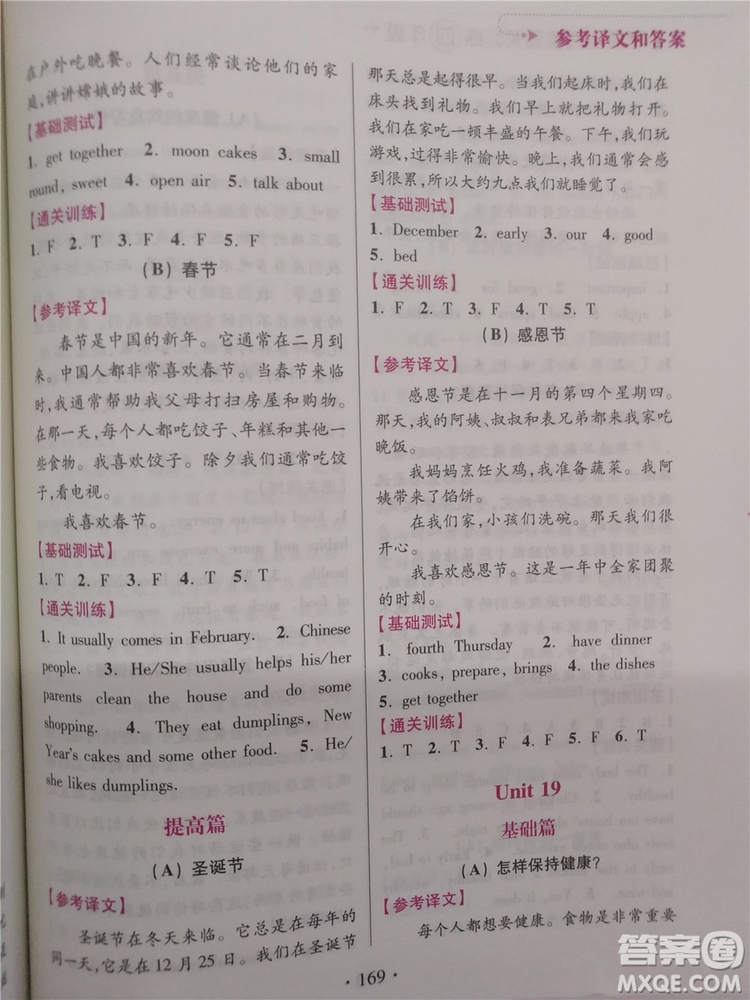 参考译文和答案
在户外吃晚餐。人们经常谈论他们的家
庭,讲讲嫦娥的故事。
【基础测试】
1. get together 2. moon cakes 3. small
round, sweet 4. open air 5. talk about
【通关训练】
1. F 2. T 3. F 4. F 5. F
(B) 春节
【参考译文】
春节是中国的新年。它通常在二月到
来。中国人都非常喜欢春节。当春节临
时,我通常帮助我父母打扫房屋和购物。
在那一天,每个人都吃饺子、年糕和其他一
些食物。我喜欢饺子。除夕我们通常吃饺
子,看电视。
我喜欢春节。
【基础测试】
1. T 2. T 3. F 4. T 5. T
【通关训练】
1. It usually comes in February. 2. Chinese
people. 3. He/She usually helps his/her
parents clean the house and do some
shopping. 4. They eat dumplings, New
Year's cakes and some other food. 5. He/
she likes dumplings.
提高篇
(A) 圣诞节
【参考译文】
圣诞节在冬天来临。它总是在每年的
同一天,它是在 12 月 25 日。我们在圣诞节
那天总是起得很早。当我们起床时,我们在
床头找到礼物。我们经常把礼物打开。
我们在家吃一顿丰盛的午餐。下午,我们玩
游戏,过得非常愉快。晚上,我们通常会感
到很累,所以大约九点我们就睡觉了。
【基础测试】
1. December 2. early 3. our 4. good
5. bed
【通关训练】
1. F 2. T 3. F 4. T 5. T
(B) 感恩节
【参考译文】
感恩节是在十一月的第四个星期四。
那天,我的阿姨、叔叔和表兄弟都来我家吃
晚饭。
我妈妈烹饪火鸡,我准备蔬菜。我阿
姨带来了馅饼。
在我们家,小孩们洗碗。那天我们很
开心。
我喜欢感恩节。这是一年中全家团聚
的时刻。
【基础测试】
1. fourth Thursday 2. have dinner
3. cooks, prepare, brings 4. the dishes
5. get together
【通关训练】
1. T 2. T 3. F 4. T 5. T
Unit 19
基础篇
(A) 怎样保持健康?
【参考译文】
每个人都想要健康。食物是非常重要
· 169 ·
答案圈
MXQE.COM